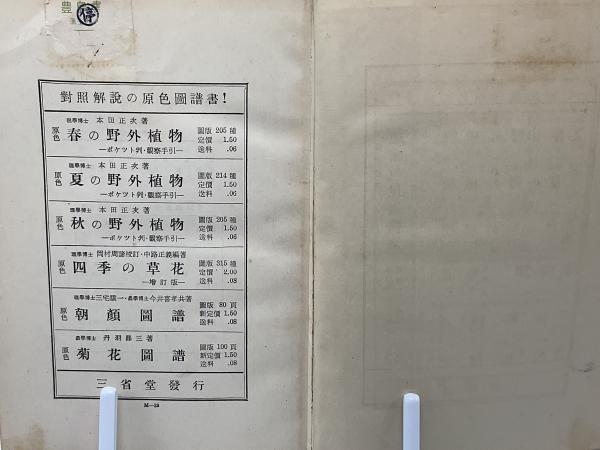 停
對照解說の原色圖譜書!
理學博士 本田正次著
原色 春の野外植物
―ポケツト判・觀察手引―
圖版 205 種
定價 1.50
送料 .06
理學博士 本田正次著
原色 夏の野外植物
―ポケツト判・觀察手引―
圖版 214 種
定價 1.50
送料 .06
理學博士 本田正次著
原色 秋の野外植物
―ポケツト判・觀察手引―
圖版 205 種
定價 1.50
送料 .06
理學博士 岡村周諦校訂・中路正義編著
原色 四季の草花
―增訂版―
圖版 315 種
定價 2.00
送料 .08
理學博士 三宅驥一・農學博士 今井喜孝共著
原色 朝顏圖譜
圖版 80 頁
新定價 1.50
送料 .08
農學博士 丹羽鼎三著
原色 菊花圖譜
圖版 100 頁
新定價 1.50
送料 .08
三省堂發行